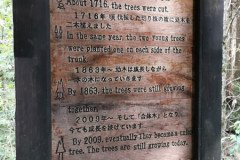 About 1716, the trees were cut.
1716年頃伐採した切り株の横に幼木を
二本植えました
In the same year, the two young trees
were planted one on each side of the
trunk.
1863年へ 幼木は成長しながら
By 1863, the trees were still growing
together.
2009年へ そして「合体木」となり、
今でも成長を続けています
By 2009, eventually they became a
tree. The trees are still growing today.